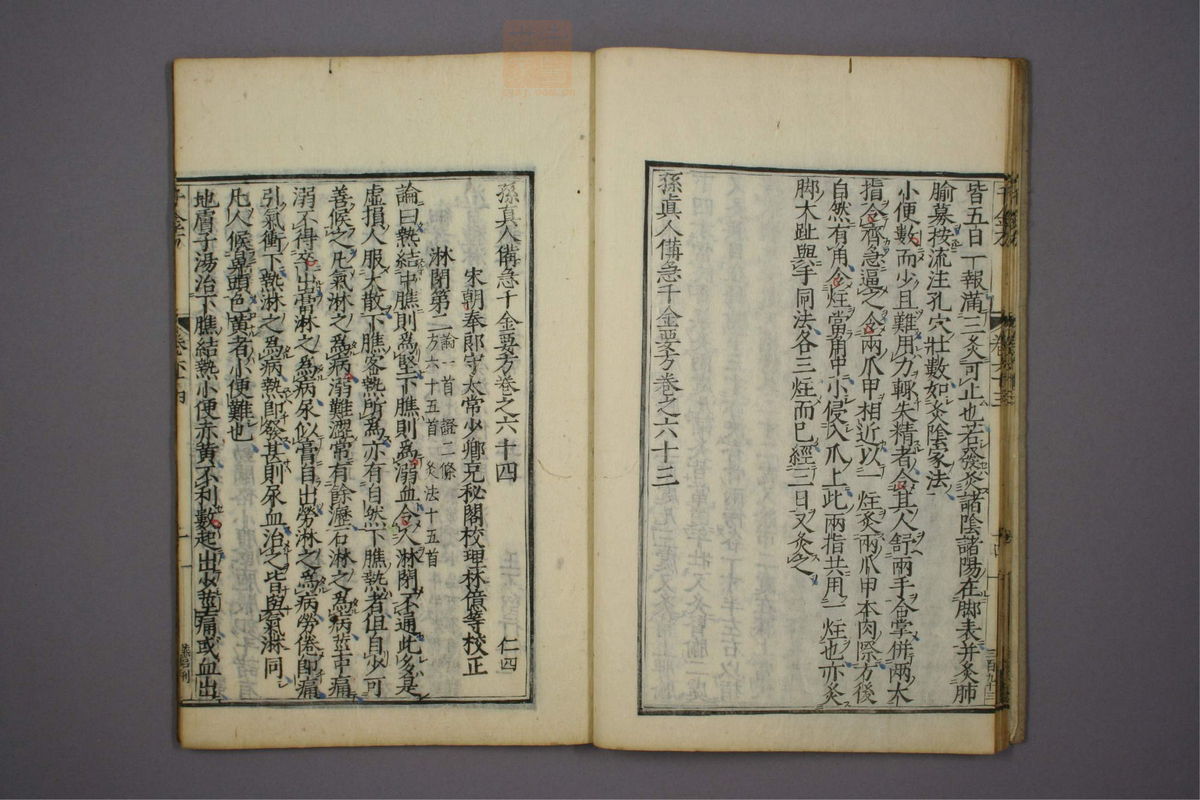 皆五日一報滿三灸可止也若發灸諸陰諸陽在脚表并灸肺
腧募按流注孔穴壯數如灸陰家法
小便數而少且難用力輒失精者令其人舒兩手合掌併兩大
指令齊急逼之令兩爪甲相近以一炷灸兩爪甲本肉際方後
自然有角令炷當角中小侵入爪上此兩指共用一炷也亦灸
脚大趾與手同法各三炷而已經三日又灸之
孫真人備急千金要方卷之六十三
孫真人備急千金要方卷之六十四 仁四
宋朝奉郎守太常少卿充秘閣校理林億等校正
淋閉第二 論一首 證二條
方六十五首 灸法十五首
論曰熱結中膲則爲堅下膲則爲溺血令人淋閉不通此多是
虛損人服大散下膲客熱所爲亦有自然下膲熱者但自少可
善候之凡氣淋之爲病溺難澀常有餘瀝石淋之爲病莖中痛
溺不得卒出膏淋之爲病尿似膏自出勞淋之爲病勞倦即痛
引氣衝下熱淋之爲病熱即發甚則尿血治之皆與氣淋同
凡人候鼻頭色黃者小便難也
地膚子湯治下膲結熱小便赤黃不利數起出少莖痛或血出